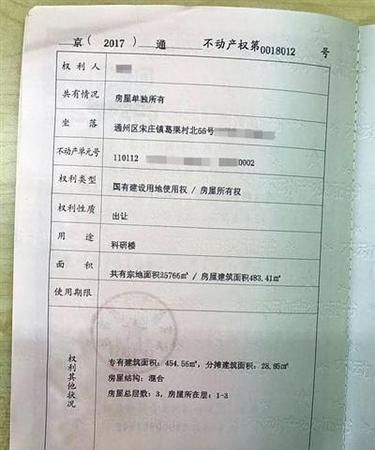 京（2017）通 不动产权第0018012 号
权利人
共有情况 房屋单独所有
坐落 通州区宋庄镇葛渠村北66号
不动产单元号 110112 0002
权利类型 国有建设用地使用权 / 房屋所有权
权利性质 出让
用途 科研楼
面积 共有宗地面积35766㎡ / 房屋建筑面积483.41㎡
使用期限
权利其他状况
专有建筑面积：454.56㎡，分摊建筑面积：28.85㎡
房屋结构：混合
房屋总层数：3，房屋所在层：1-3